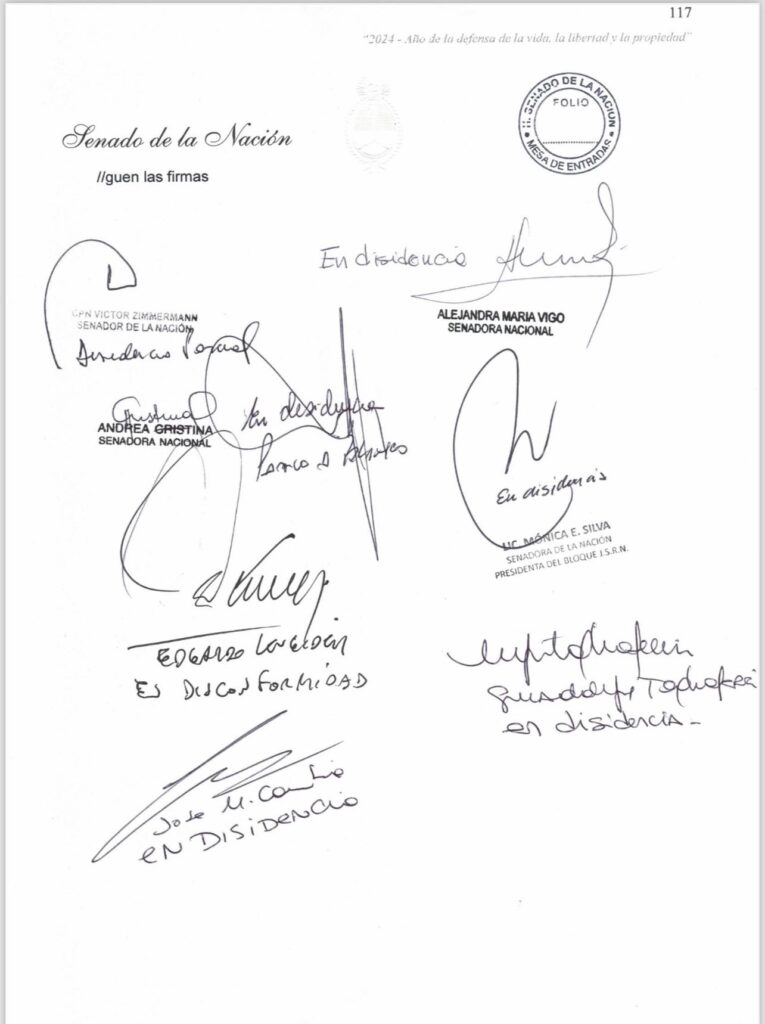 117
"2024 - Año de la defensa de la vida, la libertad y la propiedad"
H. SENADO DE LA NACIÓN
FOLIO
MESA DE ENTRADAS
Senado de la Nación
//guen las firmas
En disidencia
CPN VICTOR ZIMMERMANN
SENADOR DE LA NACIÓN
Disidencia Parcial
ALEJANDRA MARIA VIGO
SENADORA NACIONAL
En disidencia
ANDREA CRISTINA
SENADORA NACIONAL
En disidencia
LIC. MÓNICA E. SILVA
SENADORA DE LA NACIÓN
PRESIDENTA DEL BLOQUE J.S.R.N.
EDGARDO
EN DISCONFORMIDAD
Guadalupe Tagliaferri
en disidencia -
Jose M. Carambia
EN DISIDENCIA